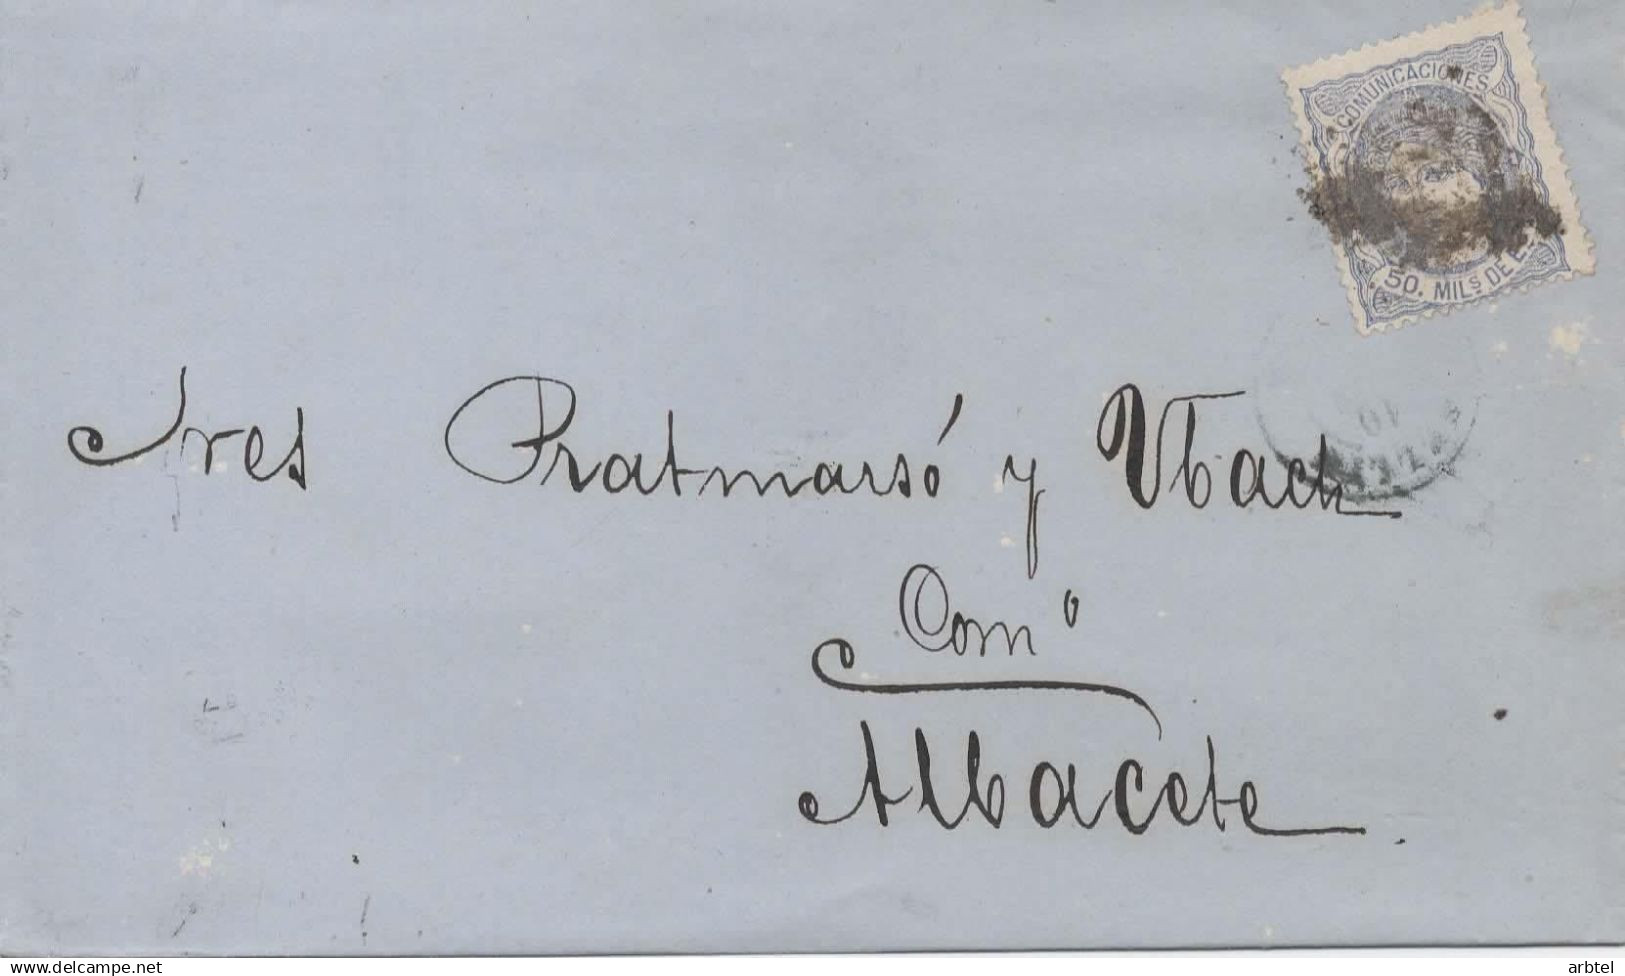 COMUNICACIONES
50. MILS DE E.
Sres Pratmarsó y Vbach
Comº
Albacete
www.delcampe.net
arbtel